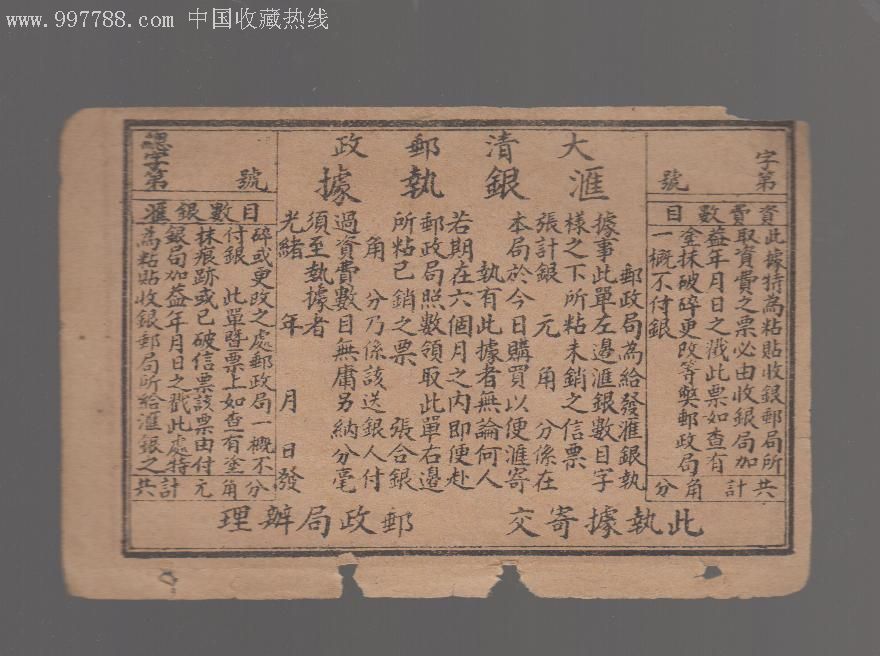 www.997788.com 中国收藏热线
大清郵政
滙銀執據
字第
號
資費數目
此據特為粘貼收銀郵局所
取資費之票必由收銀局加
蓋年月日之戳此票如查有
塗抹破碎更改等獘郵政局
一概不付銀
共計角分
郵政局為給發滙銀執
據事此單左邊滙銀數目字
樣之下所粘未銷之信票
張計銀　元　角　分係在
本局於今日購買以便滙寄
執有此據者無論何人
若期在六個月之內即便赴
郵政局照數領取此單右邊
所粘已銷之票　張合銀
角　分乃係該送銀人付
過資費數目無庸另納分毫
須至執據者
光緒　年　月　日發
總字第
號
滙銀數目
為粘貼收銀郵局所給滙銀之
銀局加蓋年月日之戳此處特
抹痕跡或已破信票該票由付
付銀　此單曁票上如查有塗
碎或更改之處郵政局一概不
共計元角分
此執據寄交　郵政局辦理